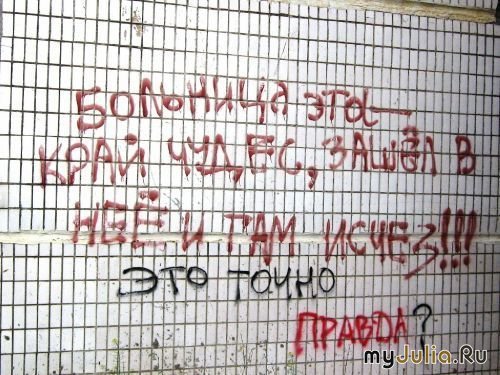 БОЛЬНИЦА ЭТА—
КРАЙ ЧУДЕС, ЗАШЁЛ В
НЕЁ И ТАМ ИСЧЕЗ!!!
ЭТО ТОЧНО
ПРАВДА?
myJulia.Ru